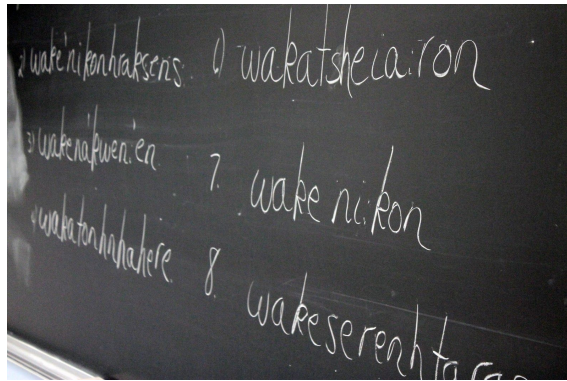 2) wake'nikonhraksens
3) wakena'kwen:en
4) wakatonhnhahere
6) wakatsheia:ron
7. wakeni:kon
8. wakeserenhtara